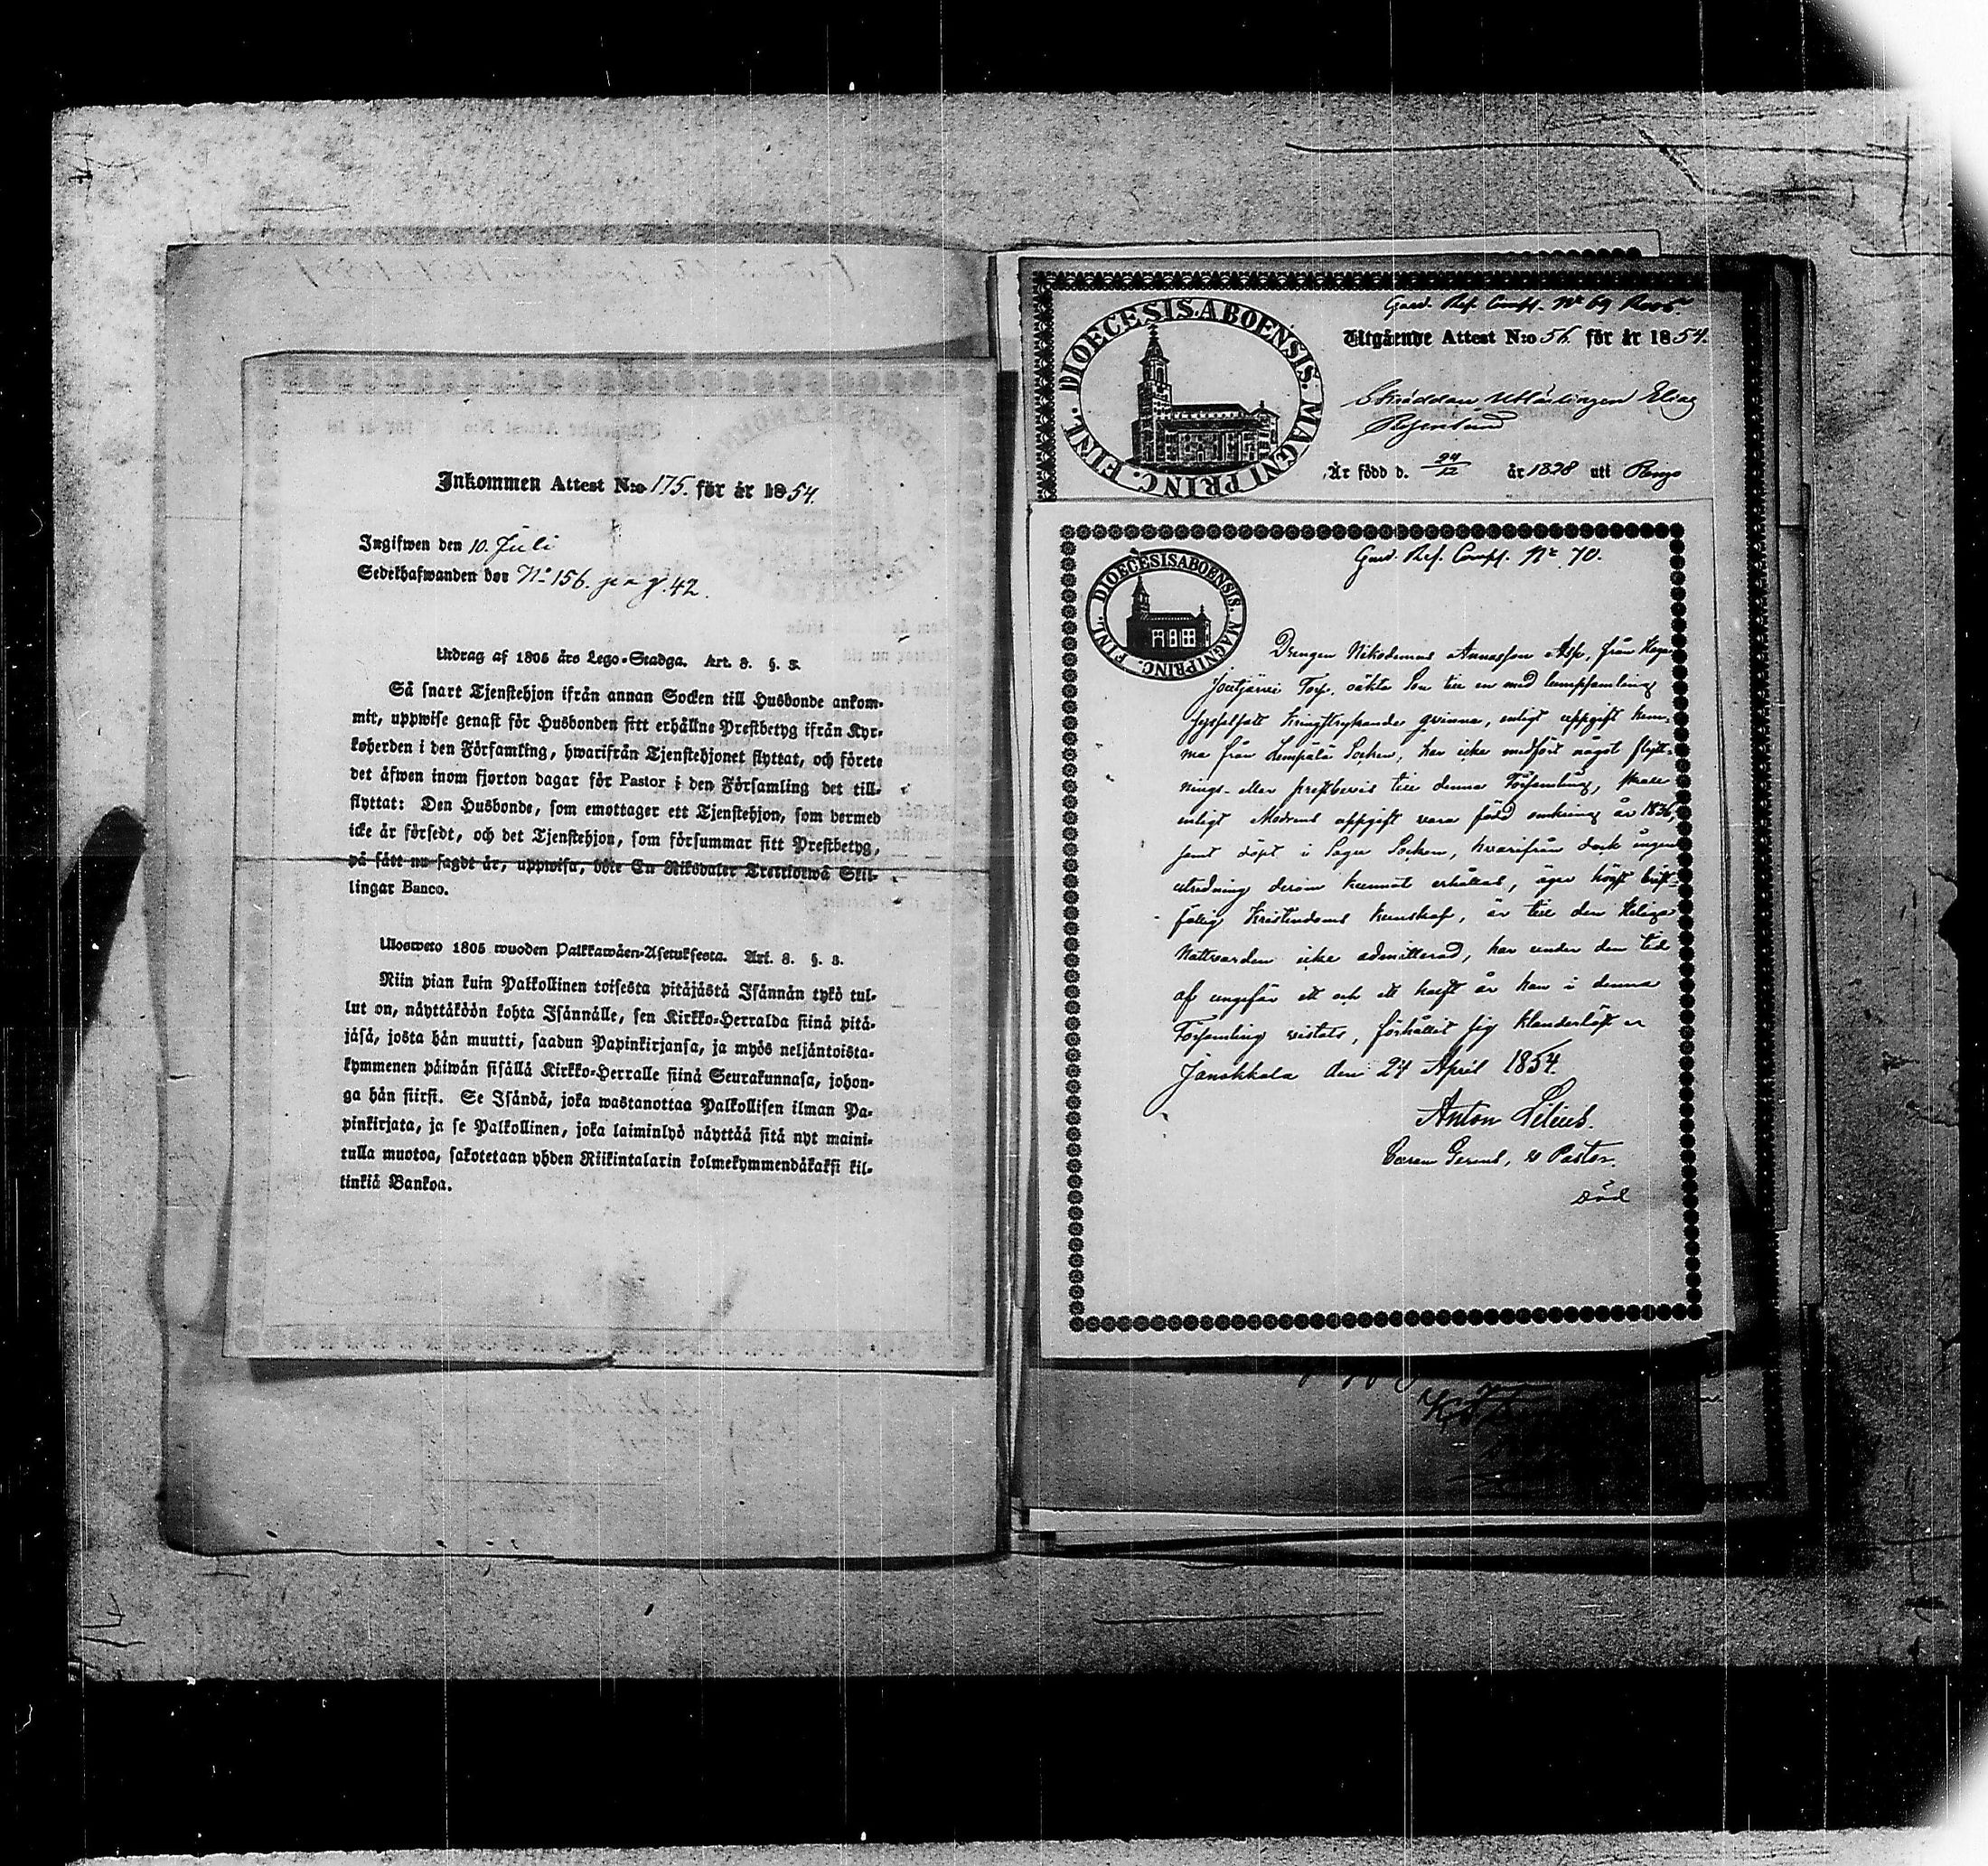 Inkommen Attest N:o 175. för år 1854.
Ingifwen den 10. Juli
Sedelhafwanden bor No 156. pag. 42.
Utdrag af 1805 års Lego-Stadga. Art. 8. §. 3.
Så snart Tjenstehjon ifrån annan Socken till Husbonde ankom-
mit, uppwise genast för Husbonden sitt erhållne Prestbetyg ifrån Kyr-
koherden i den Församling, hwarifrån Tjenstehjonet flyttat, och förete
det äfwen inom fjorton dagar för Pastor i den Församling det till-
flyttat: Den Husbonde, som emottager ett Tjenstehjon, som dermed
icke är försedt, och det Tjenstehjon, som försummar sitt Prestbetyg,
på sätt nu sagdt är, uppwisa, böte En Riksdaler Trettiotwå Skil-
lingar Banco.
Ulosweto 1805 wuoden Palkkawäen-Asetuksesta. Art. 8. §. 3.
Niin pian kuin Palkollinen toisesta pitäjästä Isännän tykö tul-
lut on, näyttäköön kohta Isännälle, sen Kirkko-Herralda siinä pitä-
jäsä, josta hän muutti, saadun Papinkirjansa, ja myös neljäntoista-
kymmenen päiwän sisällä Kirkko-Herralle siinä Seurakunnasa, johon-
ga hän siirsi. Se Isändä, joka wastanottaa Palkollisen ilman Pa-
pinkirjata, ja se Palkollinen, joka laiminlyö näyttää sitä nyt maini-
tulla muotoa, sakotetaan yhden Riikintalarin kolmekymmendäkaksi kil-
linkiä Bankoa.
DIOECESIS. ABOENSIS. MAGNI PRINC. FINL.
Gard. Ref. Comp. No 69 Roos
Utgående Attest N:o 56. för år 1854.
Skräddare Utlärlingen Elias
Är född d. 24/12 år 1828 uti
DIOECESIS ABOENSIS. MAGNI PRINC. FINL.
Gard. Ref. Comp. No. 70.
Drengen Nikodemus Annasson Asp, från
Joutjärvi Torp, oäkta Son till en med lumpsamling
sysselsatt kringstrykande qvinna, enligt uppgift kom-
ma från Lempälä Socken, har icke medfört något flytt-
nings- eller prestbevis till denna Församling, skall
enligt Modrens uppgift vara född omkring år 1836,
samt döpt i Socken, hvarifrån dock ingen
utredning derom kunnat erhållas, äger högst brist-
fällig Kristendoms kunskap, är till den Heliga
Nattvarden icke admitterad, har under den tid
af ungefär ett och ett halft år han i denna
Församling vistats, förhållit sig klanderlöst
Janakkala den 24 April 1854.
Anton Lilius.
Curam Gerens, Pastor.
Död